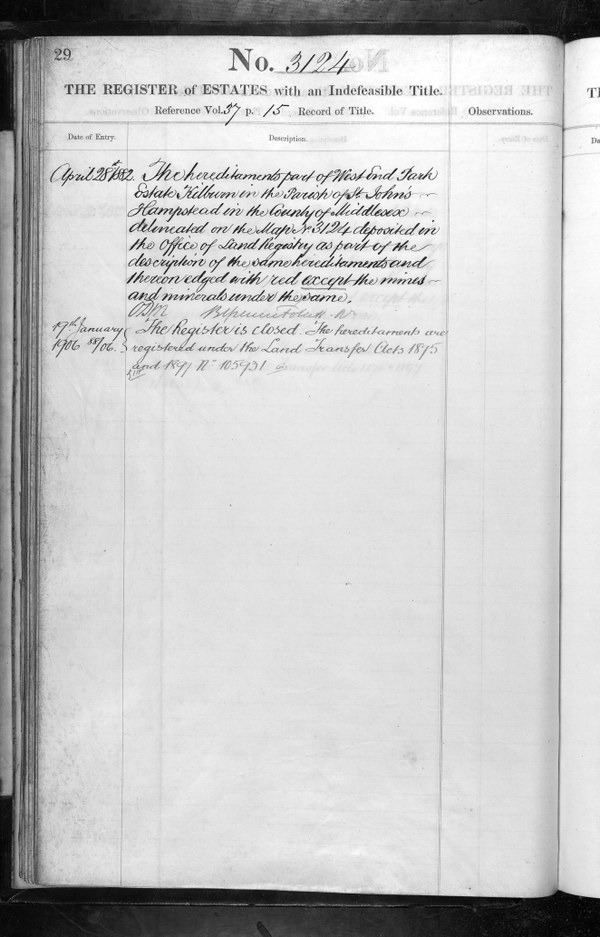 29
No. 3124
THE REGISTER of ESTATES with an Indefeasible Title.
Reference Vol. 37 p. 15 Record of Title.
Observations.
Date of Entry.
Description.
April 28th 1882. The hereditaments part of West End Park
Estate Kilburn in the Parish of St. John's
Hampstead in the County of Middlesex
delineated on the Map No 3124 deposited in
the Office of Land Registry as part of the
description of the same hereditaments and
thereon edged with red except the mines
and minerals under the same.
17th January The Register is closed. The hereditaments are
1906 88/06. registered under the Land Transfer Acts 1875
and 1897 No 105931